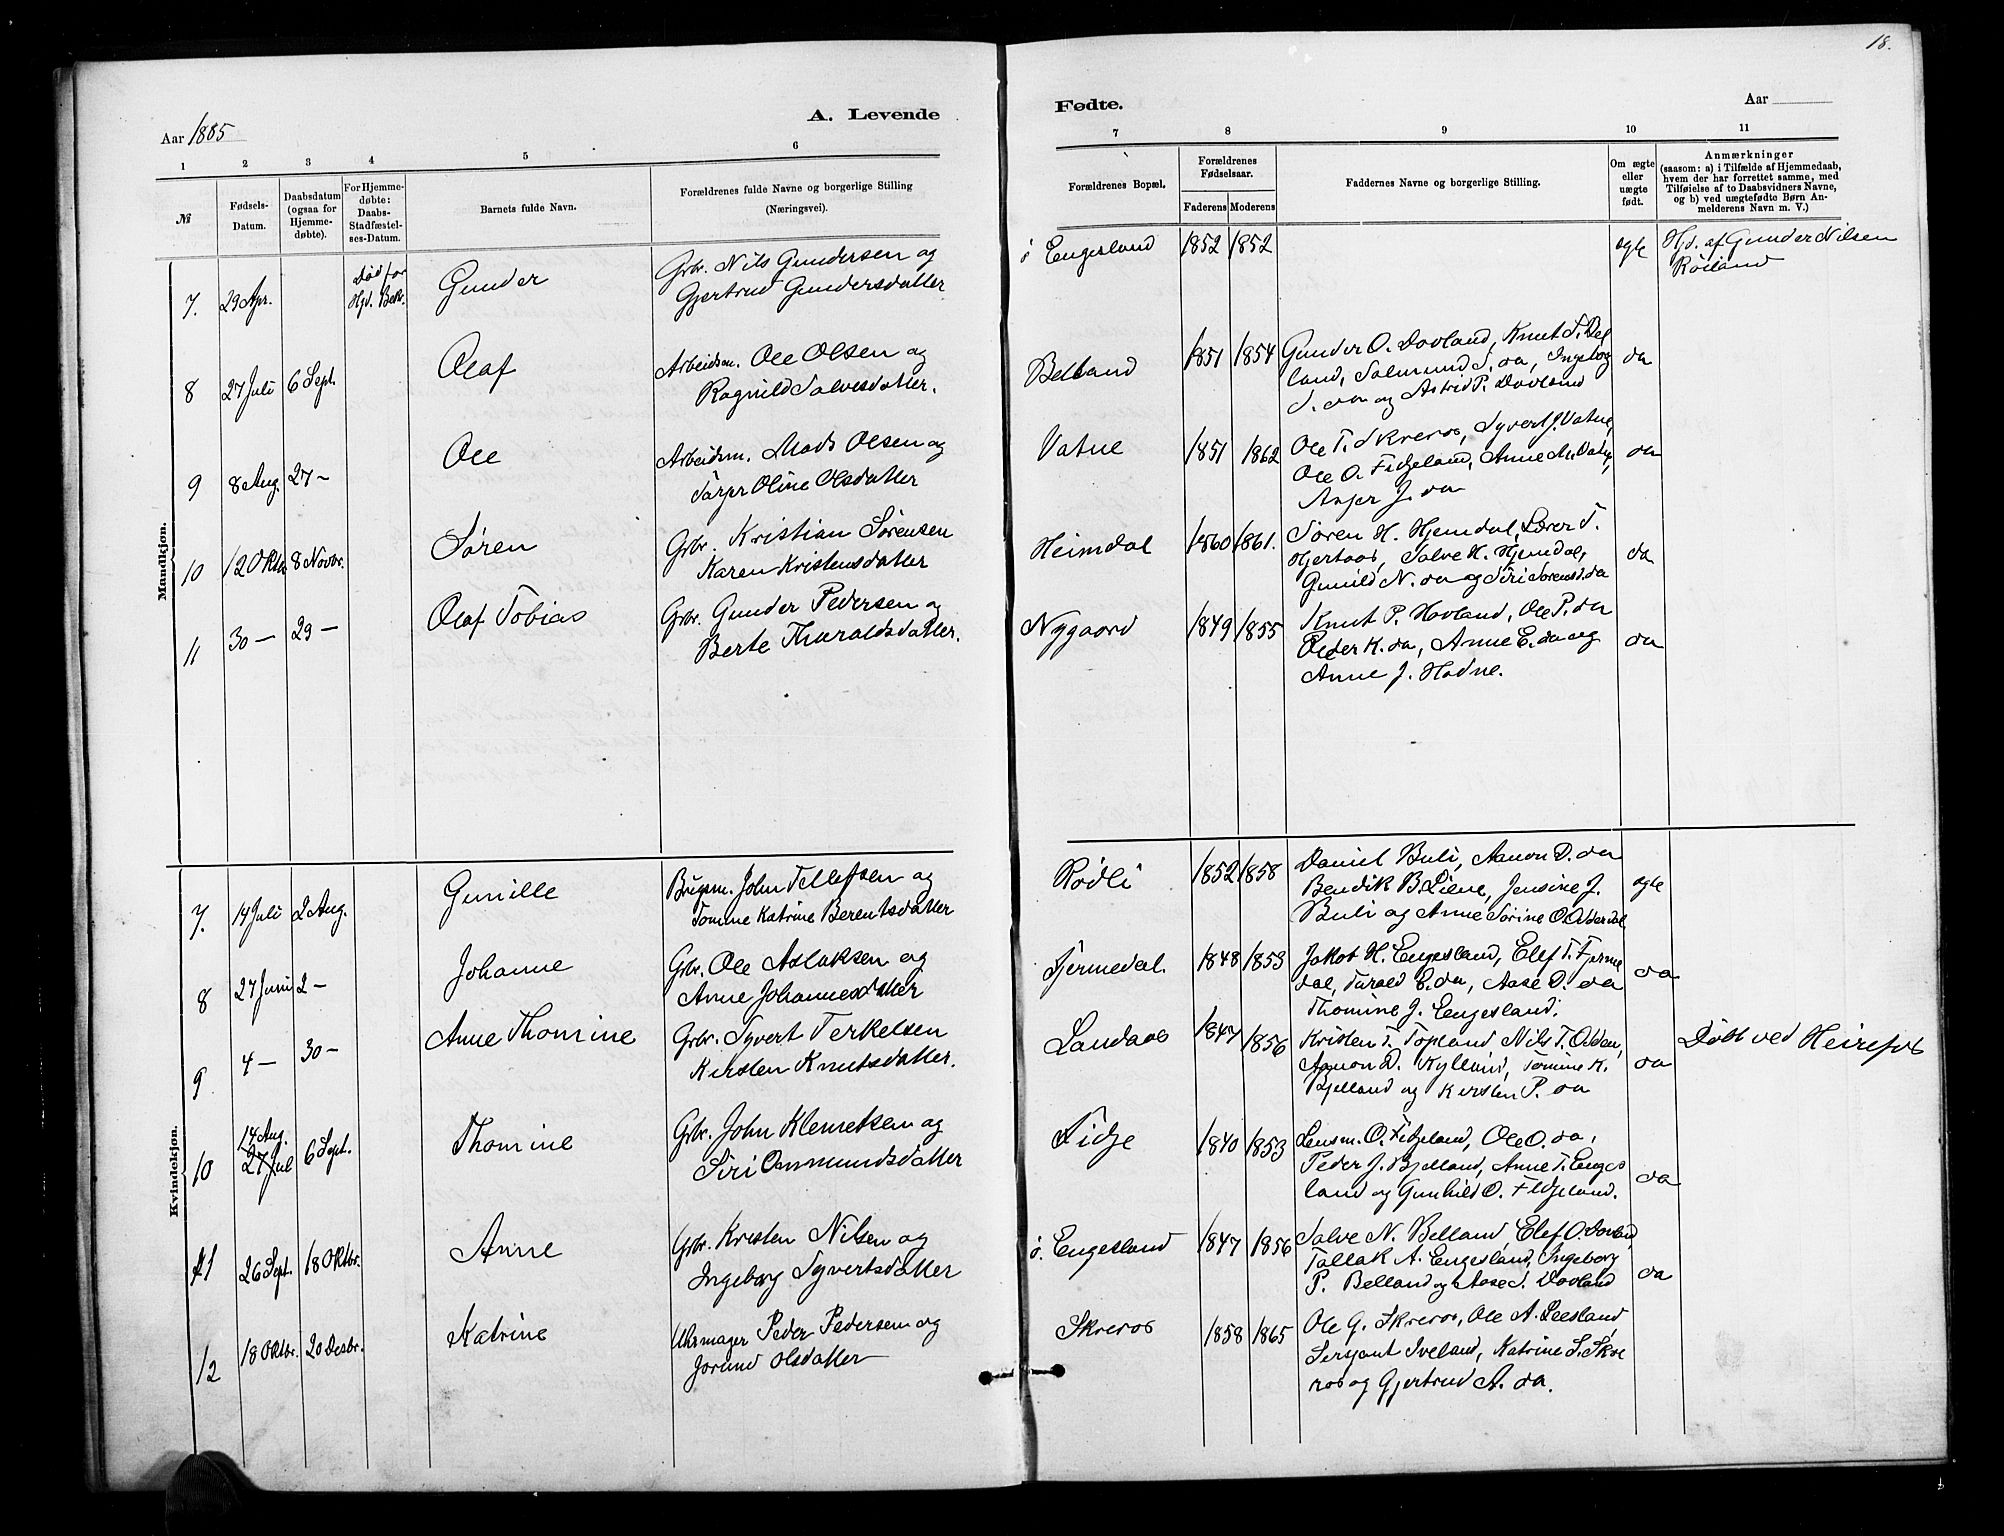 18.
A. Levende
Fødte.
Aar 1885
Aar
1 2 3 4 5 6 7 8 9 10 11
№
Fødsels-Datum.
Daabsdatum (ogsaa for Hjemme-døbte).
For Hjemme-døbte: Daabs-Stadfæstel-ses-Datum.
Barnets fulde Navn.
Forældrenes fulde Navne og borgerlige Stilling (Næringsvei).
Forældrenes Bopæl.
Forældrenes Fødselsaar.
Faderens Moderens
Faddernes Navne og borgerlige Stilling.
Om ægte eller uægte født.
Anmærkninger
(saasom: a) i Tilfælde af Hjemmedaab, hvem der har forrettet samme, med Tilføielse af to Daabsvidners Navne, og b) ved uægtefødte Børn An-melderens Navn m. V.)
Mandkjøn.
7. 29 Apr. Død før Hjd. Bekr. Gunder
Grbr. Nils Gundersen og
Gjertrud Gundersdatter
ø Engesland 1852 1852 ægte
Hjd. af Gunder Nilsen
Røiland
8 27 Juli 6 Sept. Olaf
Arbeidsm. Ole Olsen og
Ragnild Salvesdatter.
Belland 1851 1854
Gunder O. Dovland, Knut T. Bel
land, Salmund S. da, Ingeborg
S. da og Astrid P. Dovland
da
9 8 Aug. 27 – Ole
Arbeidsm. Mads Olsen og
Oline Olsdatter
Vatne 1851 1862
Ole T. Skreros, Syvert J. Vatne,
Ole O. Fidjeland, Anne M. Vatne,
J. da
da
10 12 Oktbr 8 Novbr. Søren
Grbr. Kristian Sørensen
Karen Kristensdatter
Heimdal 1860 1861.
Søren H. Hjemdal, Lærer T.
Hjertaas, Salve H. Hjemdal,
Gunild N. da og Siri Sørensd. da
da
11 30 – 29 – Olaf Tobias
Grbr. Gunder Pedersen og
Berte Tharaldsdatter.
Nygaard 1849 1855
Knut P. Hovland, Ole P. da
Peder K. da, Anne E. da og
Anne J. Hodne.
da
Kvindekjøn.
7. 14 Juli 2 Aug. Gunille
Bugsm. John Tellefsen og
Tomine Katrine Berentsdatter
Rødli 1852 1858
Daniel Buli, Aanon D. da
Bendik B. Liene, Jensine J.
Buli og Anne Sørine O. Odderdal
ægte
8 27 Juni 2 – Johanne
Grbr. Ole Aslaksen og
Anne Johannesdatter
Fjermedal. 1848 1853
Jakob H. Engesland, Elef T. Fjerme
dal, Tarald E. da, Aase D. da
Thomine J. Engesland.
da
9 4 – 30 – Anne Thomine
Grbr. Syvert Terkelsen
Kirsten Knutsdatter.
Landaas 1847 1856
Kristen T. Topland Nils T. Odden,
Aanon D. Kylland, Tomine K.
Bjelland og Kirsten P. da
da
Døbt ved Heirefos
10 14 Aug. 27 Jul 6 Sept. Thomine
Grbr. John Klemetsen og
Siri Ommundsdatter
Fidje 1840 1853
Lensm. O. Fidjeland, Ole O. da,
Peder J. Bjelland, Anne T. Enges
land og Gunhild O. Fidjeland.
da
11 26 Sept. 18 Oktbr. Anne
Grbr. Kristen Nilsen og
Ingeborg Syvertsdatter
ø. Engesland 1847 1856
Salve N. Belland, Elef O. Dovland,
Tallak A. Engesland, Ingeborg
P. Belland og Aase S. Dovland
da
12 18 Oktbr. 20 Desbr. Katrine
Uhrmager Peder Pedersen og
Jorund Olsdatter
Skreros 1858 1865
Ole G. Skreros, Ole A. Leesland
Sersjant Iveland, Katrine S. Skre
ros og Gjertrud A. da.